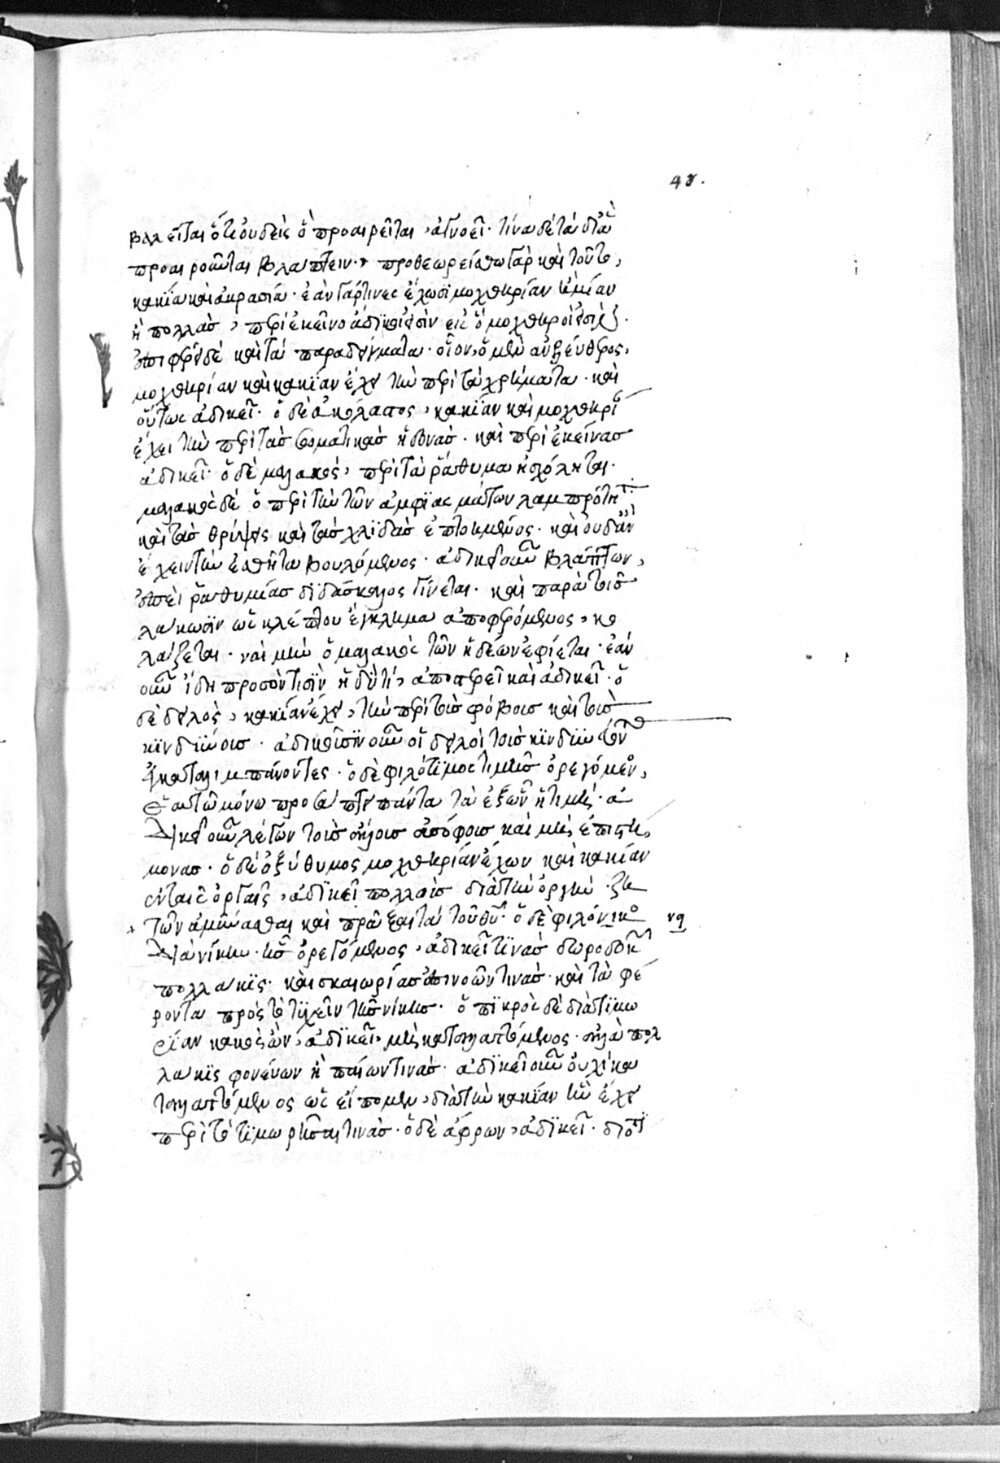 48.
βλάπτεται ὅτι οὐδεὶς ὃ προαιρεῖται, ἀγνοεῖ. τίνα δὲ τὰ δι' ἃ
προαιροῦνται βλάπτειν, προθεωρείσθω γὰρ καὶ τοῦτο,
κακία καὶ ἀκρασία. ἐὰν γάρ τινες ἔχωσι μοχθηρίαν ἢ μίαν
ἢ πολλὰς, περὶ ἐκεῖνο ἄδικοί εἰσὶν εἰς ὃ μοχθηροί εἰσι.
ἐπιφέρει δὲ καὶ τὰ παραδείγματα. οἷον, ὁ μὲν ἀνελεύθερος,
μοχθηρίαν καὶ κακίαν ἔχει τὴν περὶ τὰ χρήματα. καὶ
οὕτως ἀδικεῖ. ὁ δὲ ἀκόλαστος, κακίαν καὶ μοχθηρί
ἔχει τὴν περὶ τὰς σωματικὰς ἡδονάς. καὶ περὶ ἐκείνας
ἀδικεῖ. ὁ δὲ μαλακός, περὶ τὰ ῥάθυμα
μαλακὸς δὲ ὁ περὶ τὴν τῶν ἀμφιασμάτων λαμπρότητα
καὶ τὰς θρύψεις καὶ τὰς χλιδὰς ἐπτοημένος. καὶ
ἔχειν τὴν ἐσθῆτα βουλόμενος. ἀδικεῖ οὖν βλάπτων,
ἐπεὶ ῥαθυμίας διδάσκαλος γίνεται. καὶ παρὰ τοῖς
λάκωσιν ὡς κλέπτου ἔγκλημα ἀποφερόμενος, κο
λάζεται. ναὶ μὴν ὁ μαλακὸς τῶν ἡδέων ἐφίεται. ἐὰν
οὖν ἴδῃ προσόν τισιν ἡδύ τι, ἀποστερεῖ καὶ ἀδικεῖ. ὁ
δὲ δειλὸς, κακίαν ἔχει, τὴν περὶ τοὺς φόβους καὶ τοὺς
κινδύνους. ἀδικοῦσιν οὖν οἱ δειλοὶ τοὺς
ἐγκαταλιμπάνοντες. ὁ δὲ φιλότιμος τιμῆς ὀρεγόμενος,
ἑαυτῷ μόνῳ προσάπτει πάντα τὰ ἐξ ὧν ἡ τιμή. ἀ
δικεῖ οὖν λέγων τοὺς ἄλλους ἀσόφους καὶ μὴ ἐπιστή
μονας. ὁ δὲ ὀξύθυμος μοχθηρίαν ἔχων καὶ κακίαν
ἐν ταῖς ὀργαῖς, ἀδικεῖ πολλοὺς διὰ τὴν ὀργὴν. ζη
τῶν ἀμύνασθαι καὶ πρᾶξαι τὰ τοῦ θυμοῦ. ὁ δὲ φιλόνικος
διὰ νίκην ἧς ὀρεγόμενος, ἀδικεῖ τινὰς δωροδοκῶν
πολλάκις. καὶ σκαιωρίας ἐπινοῶν τινάς. καὶ τὰ φέ
ροντα πρὸς τὸ τυχεῖν τῆς νίκης. ὁ πικρὸς δὲ διὰ τιμω
ρίαν κακὸς ὢν, ἀδικεῖ, μὴ καταλλαττόμενος. ἀλλὰ πολ
λάκις φονεύων ἢ παίων τινάς. ἀδικεῖ οὖν οὐχὶ κα
ταλλαττόμενος ὡς εἴπομεν, διὰ τὴν κακίαν ἣν ἔχει
περὶ τὸ τιμωρῆσαι τινάς. ὁ δὲ ἄφρων, ἀδικεῖ. διότι